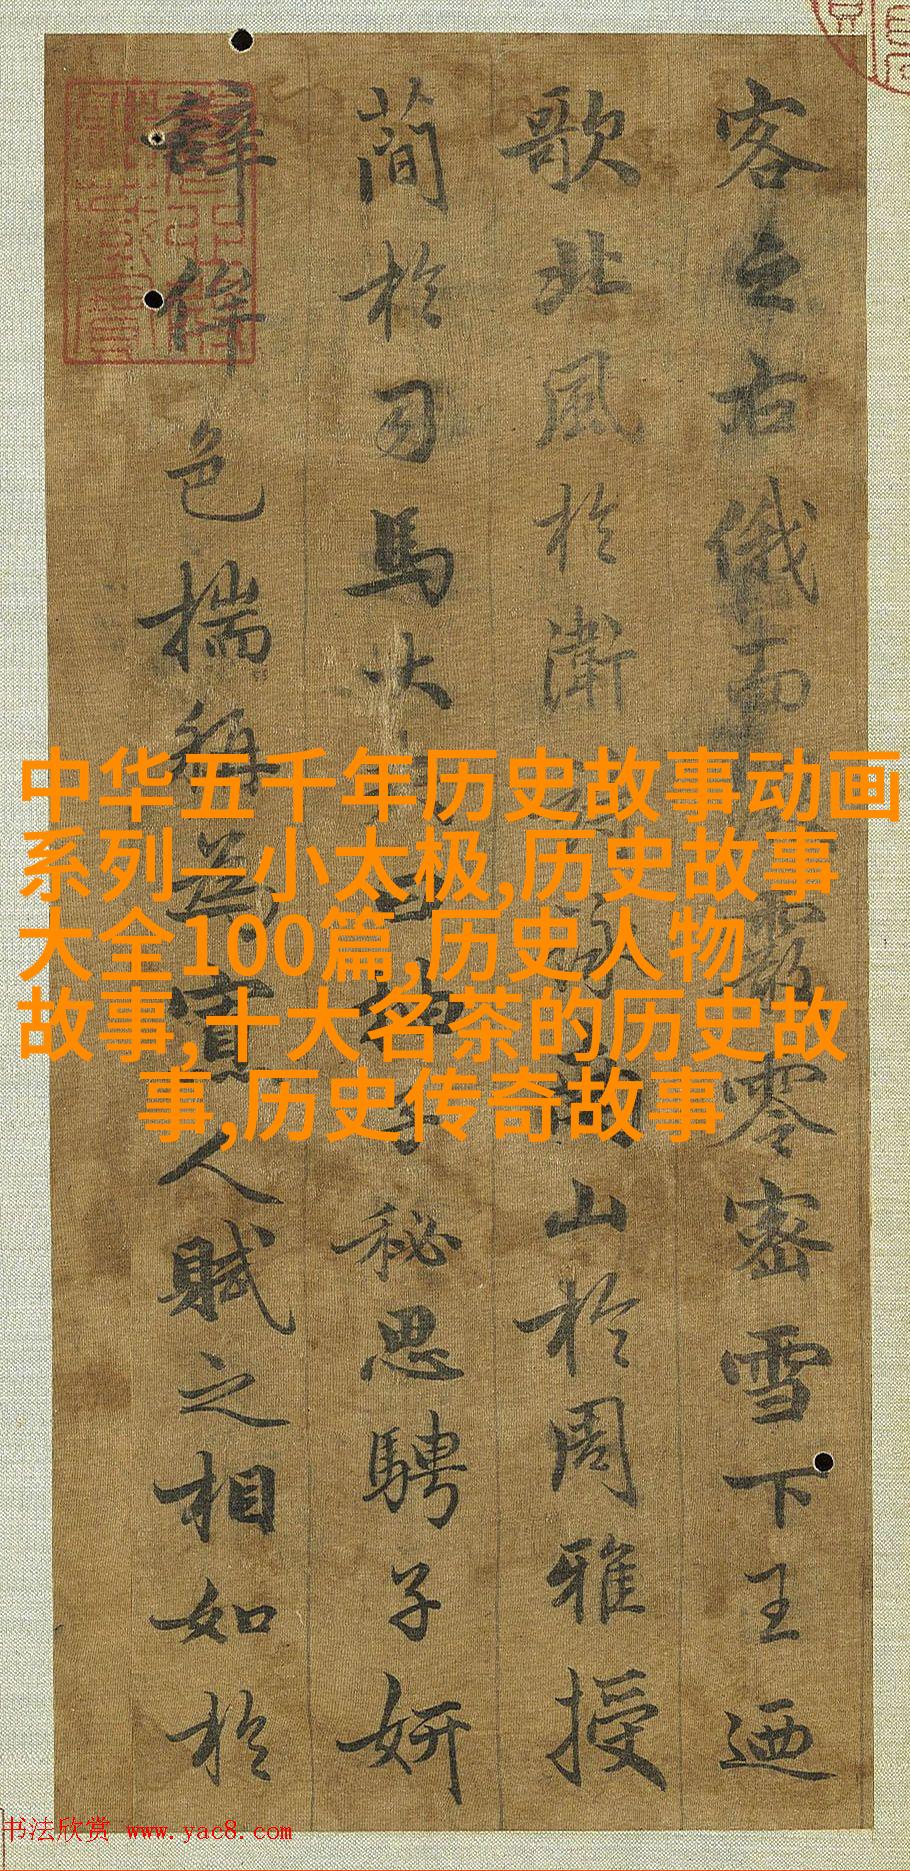 客之右俄而霰零密雪下王迺
歌北風於衛詠山於周雅授
簡於司馬大抽子秘思騁子妍
辭侔色揣稱為寡人賦之相如於
中华五千年历史故事动画
系列—小太极,历史故事
大全100篇,历史人物
故事,十大名茶的历史故
事,历史传奇故事
书法欣赏 www.yac8.com